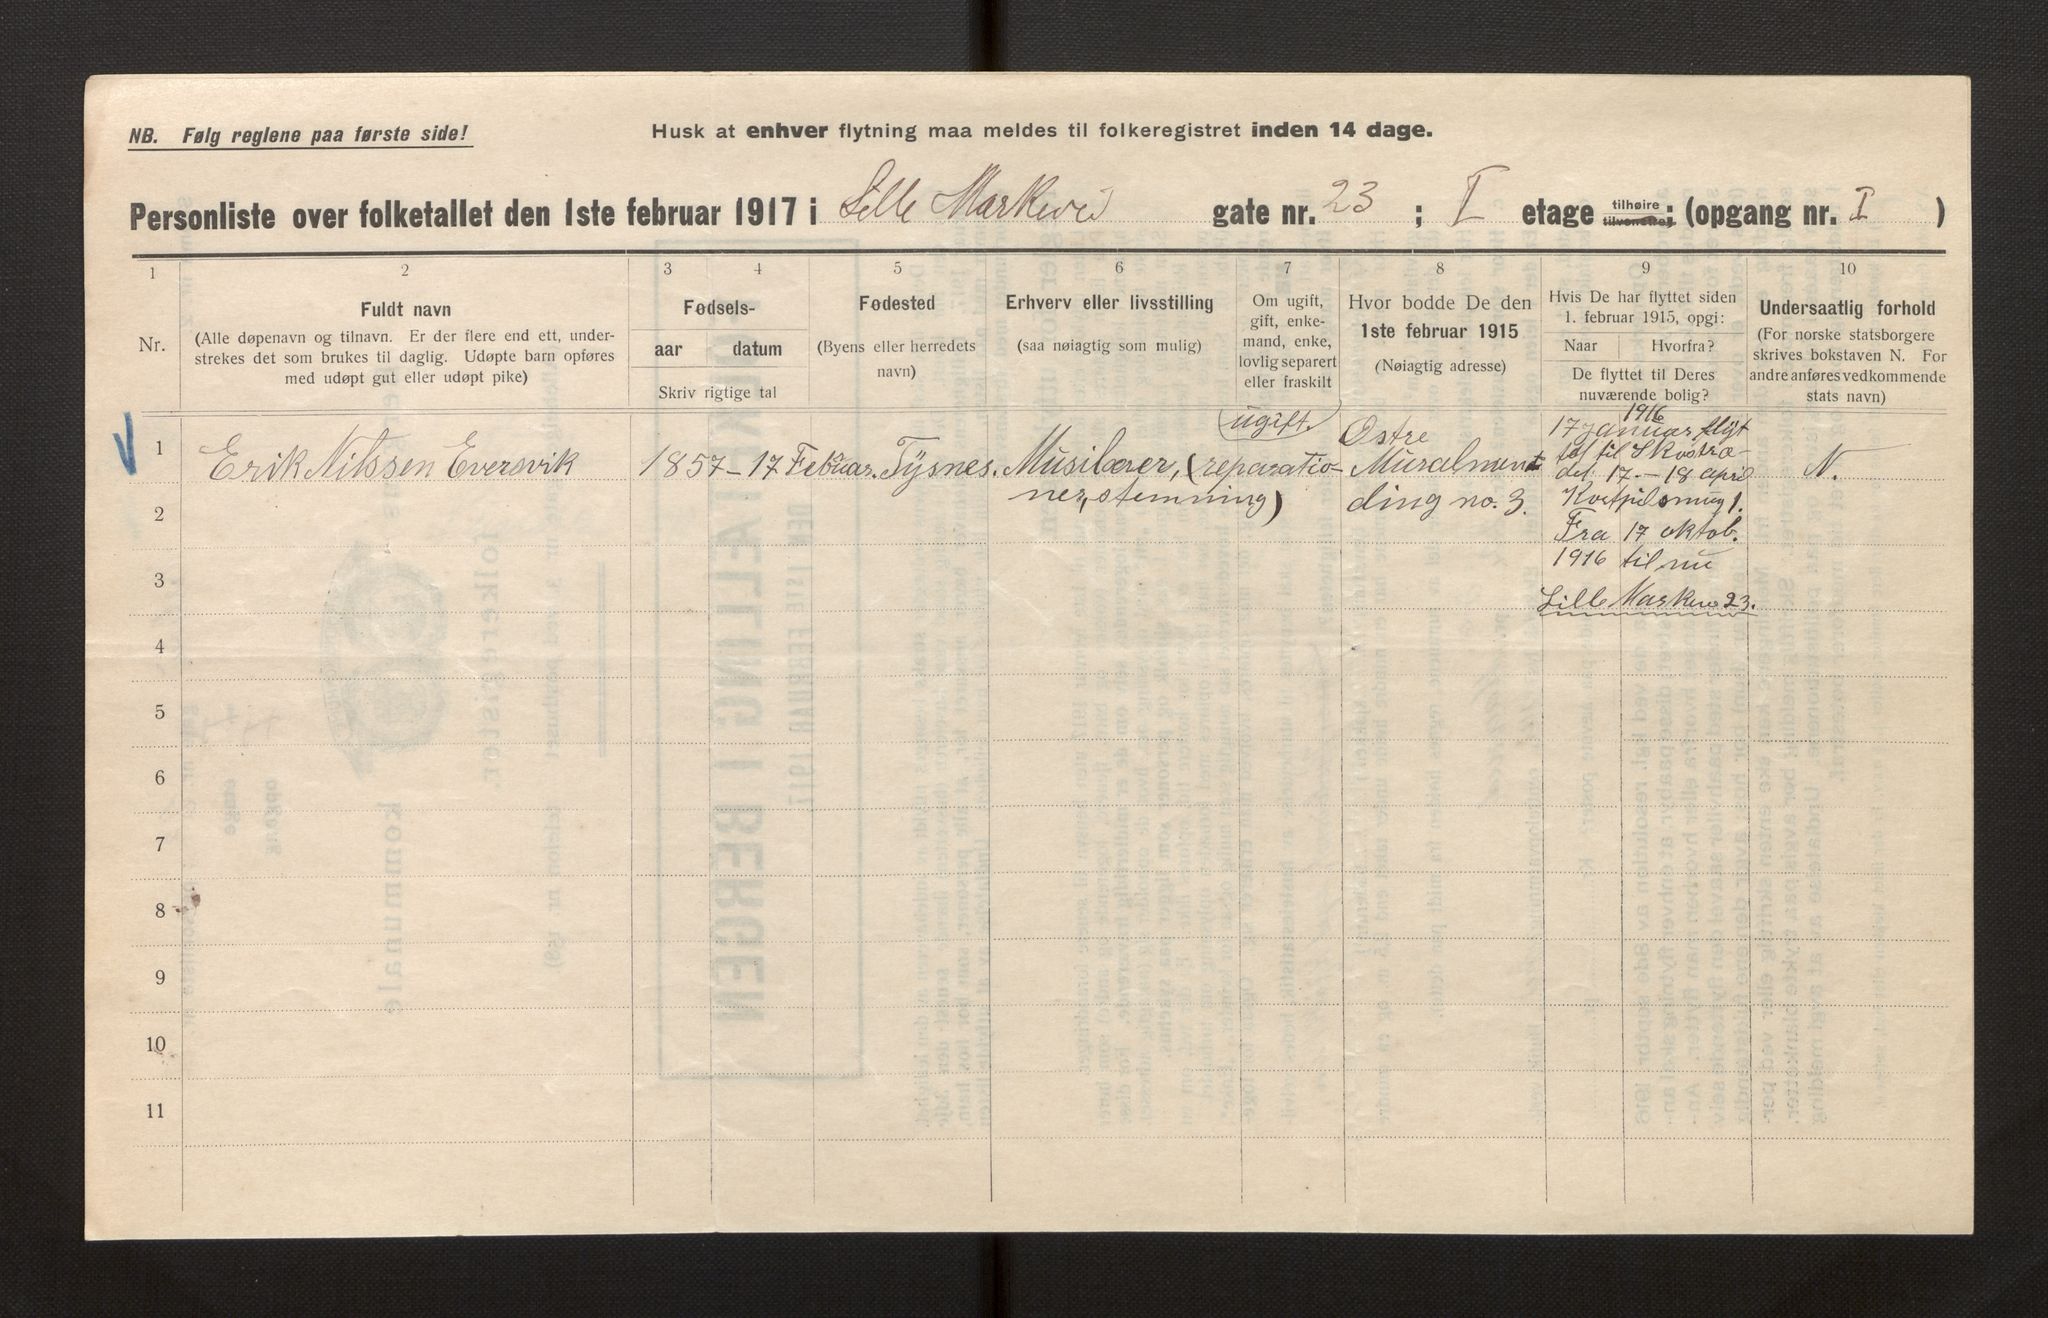 NB. Følg reglene paa første side!
Husk at enhver flytning maa meldes til folkeregistret inden 14 dage.
Personliste over folketallet den 1ste februar 1917 i Lille Markevei gate nr. 23 ; I etage tilhøire tilvenstre; (opgang nr. I )
1 2 3 4 5 6 7 8 9 10
Nr.
Fuldt navn
(Alle døpenavn og tilnavn. Er der flere end ett, under-
strekes det som brukes til daglig. Udøpte barn opføres
med udøpt gut eller udøpt pike)
Fødsels-
aar datum
Skriv rigtige tal
Fødested
(Byens eller herredets
navn)
Erhverv eller livsstilling
(saa nøiagtig som mulig)
Om ugift,
gift, enke-
mand, enke,
lovlig separert
eller fraskilt
Hvor bodde De den
1ste februar 1915
(Nøiagtig adresse)
Hvis De har flyttet siden
1. februar 1915, opgi:
Naar Hvorfra?
De flyttet til Deres
nuværende bolig?
Undersaatlig forhold
(For norske statsborgere
skrives bokstaven N. For
andre anføres vedkommende
stats navn)
1
Erik Nilssen Eversvik
1857 – 17 Februar.
Tysnes.
Musilærer, (reparatio-
ner, stemning)
ugift.
Østre
Muralmen
ding no. 3.
1916
17 januar flyt
til Skostræ-
det 17. – 18 april
1.
Fra 17 oktob.
1916 til nu
Lille Markevei 23.
N.
2
3
4
5
6
7
8
9
10
11